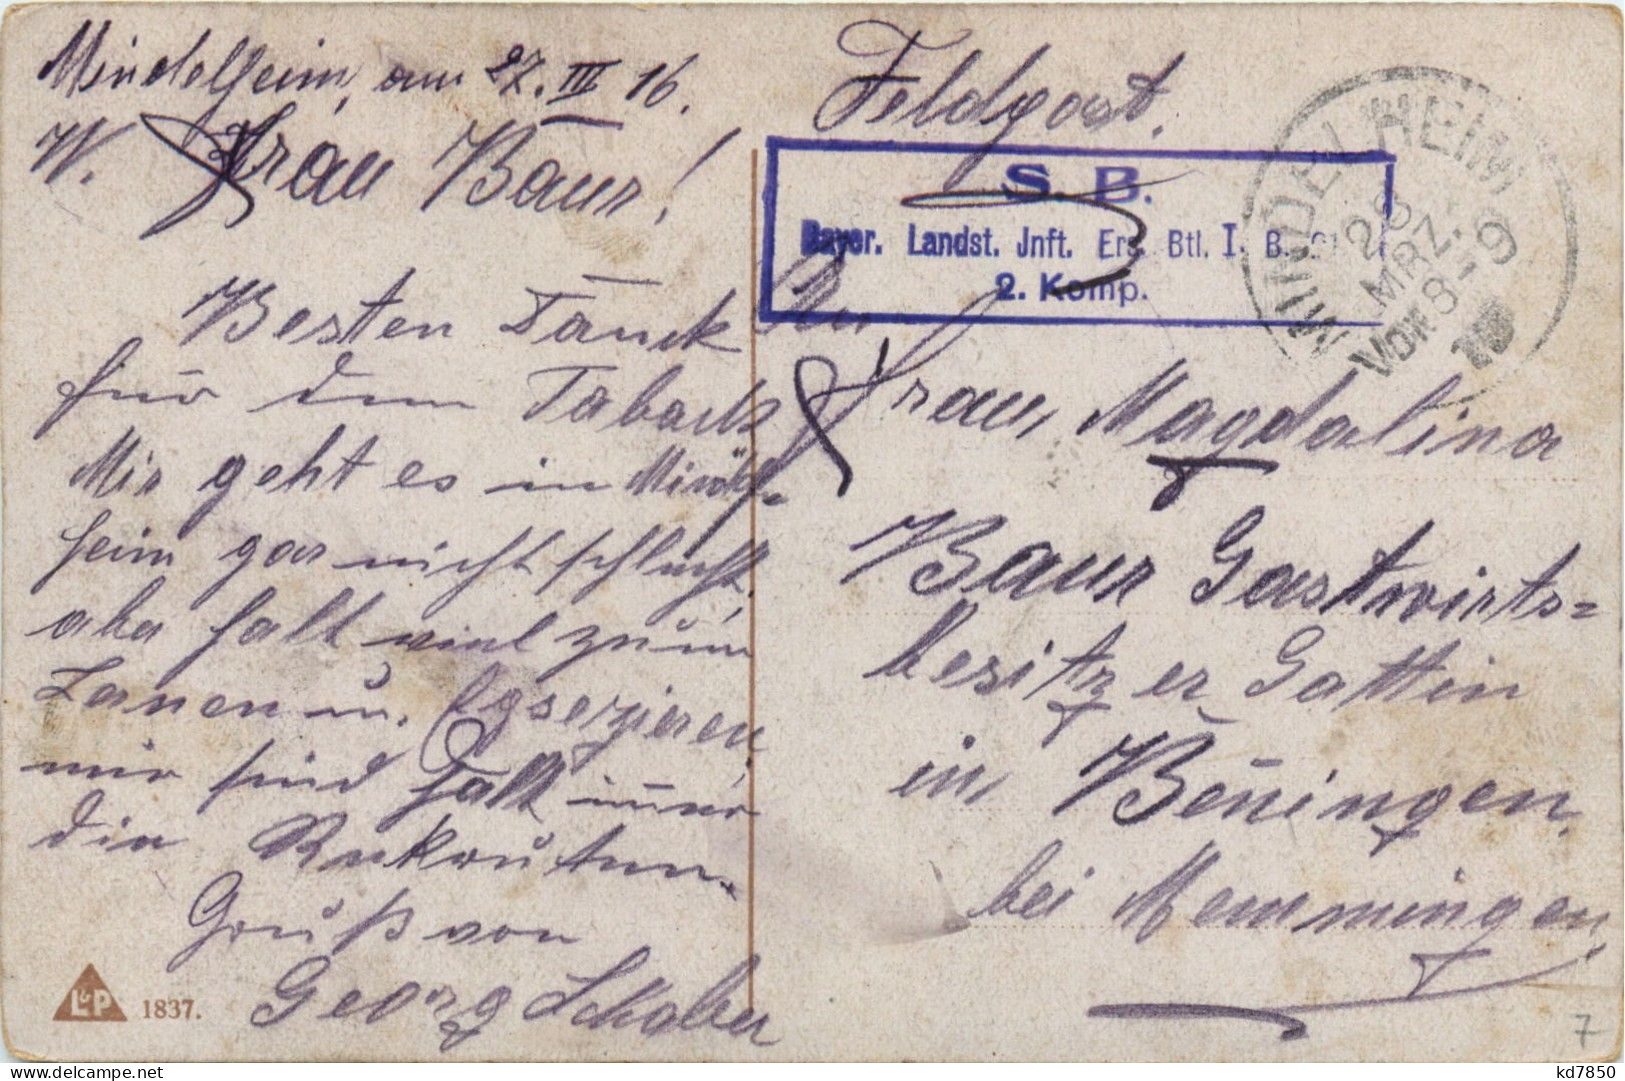 Mindelheim, am 27. III 16.
W. Frau Baur!
Besten Danck
für den Taback
Mir geht es in Mindel=
heim gar nicht schlecht,
aber halt viel zum
u.
wir sind halt immer
die Rekruten.
Gruß von
Georg
L&P 1837.
Feldpost.
S. B.
Bayer. Landst. Jnft. Ers. Btl. I. B.
2. Komp.
MINDELHEIM
28 MRZ.
VOR 8-9
An
Frau Magdalina
Baur Gastwirts=
besitzer Gattin
in Beningen
bei Memmingen.
7
kd7850